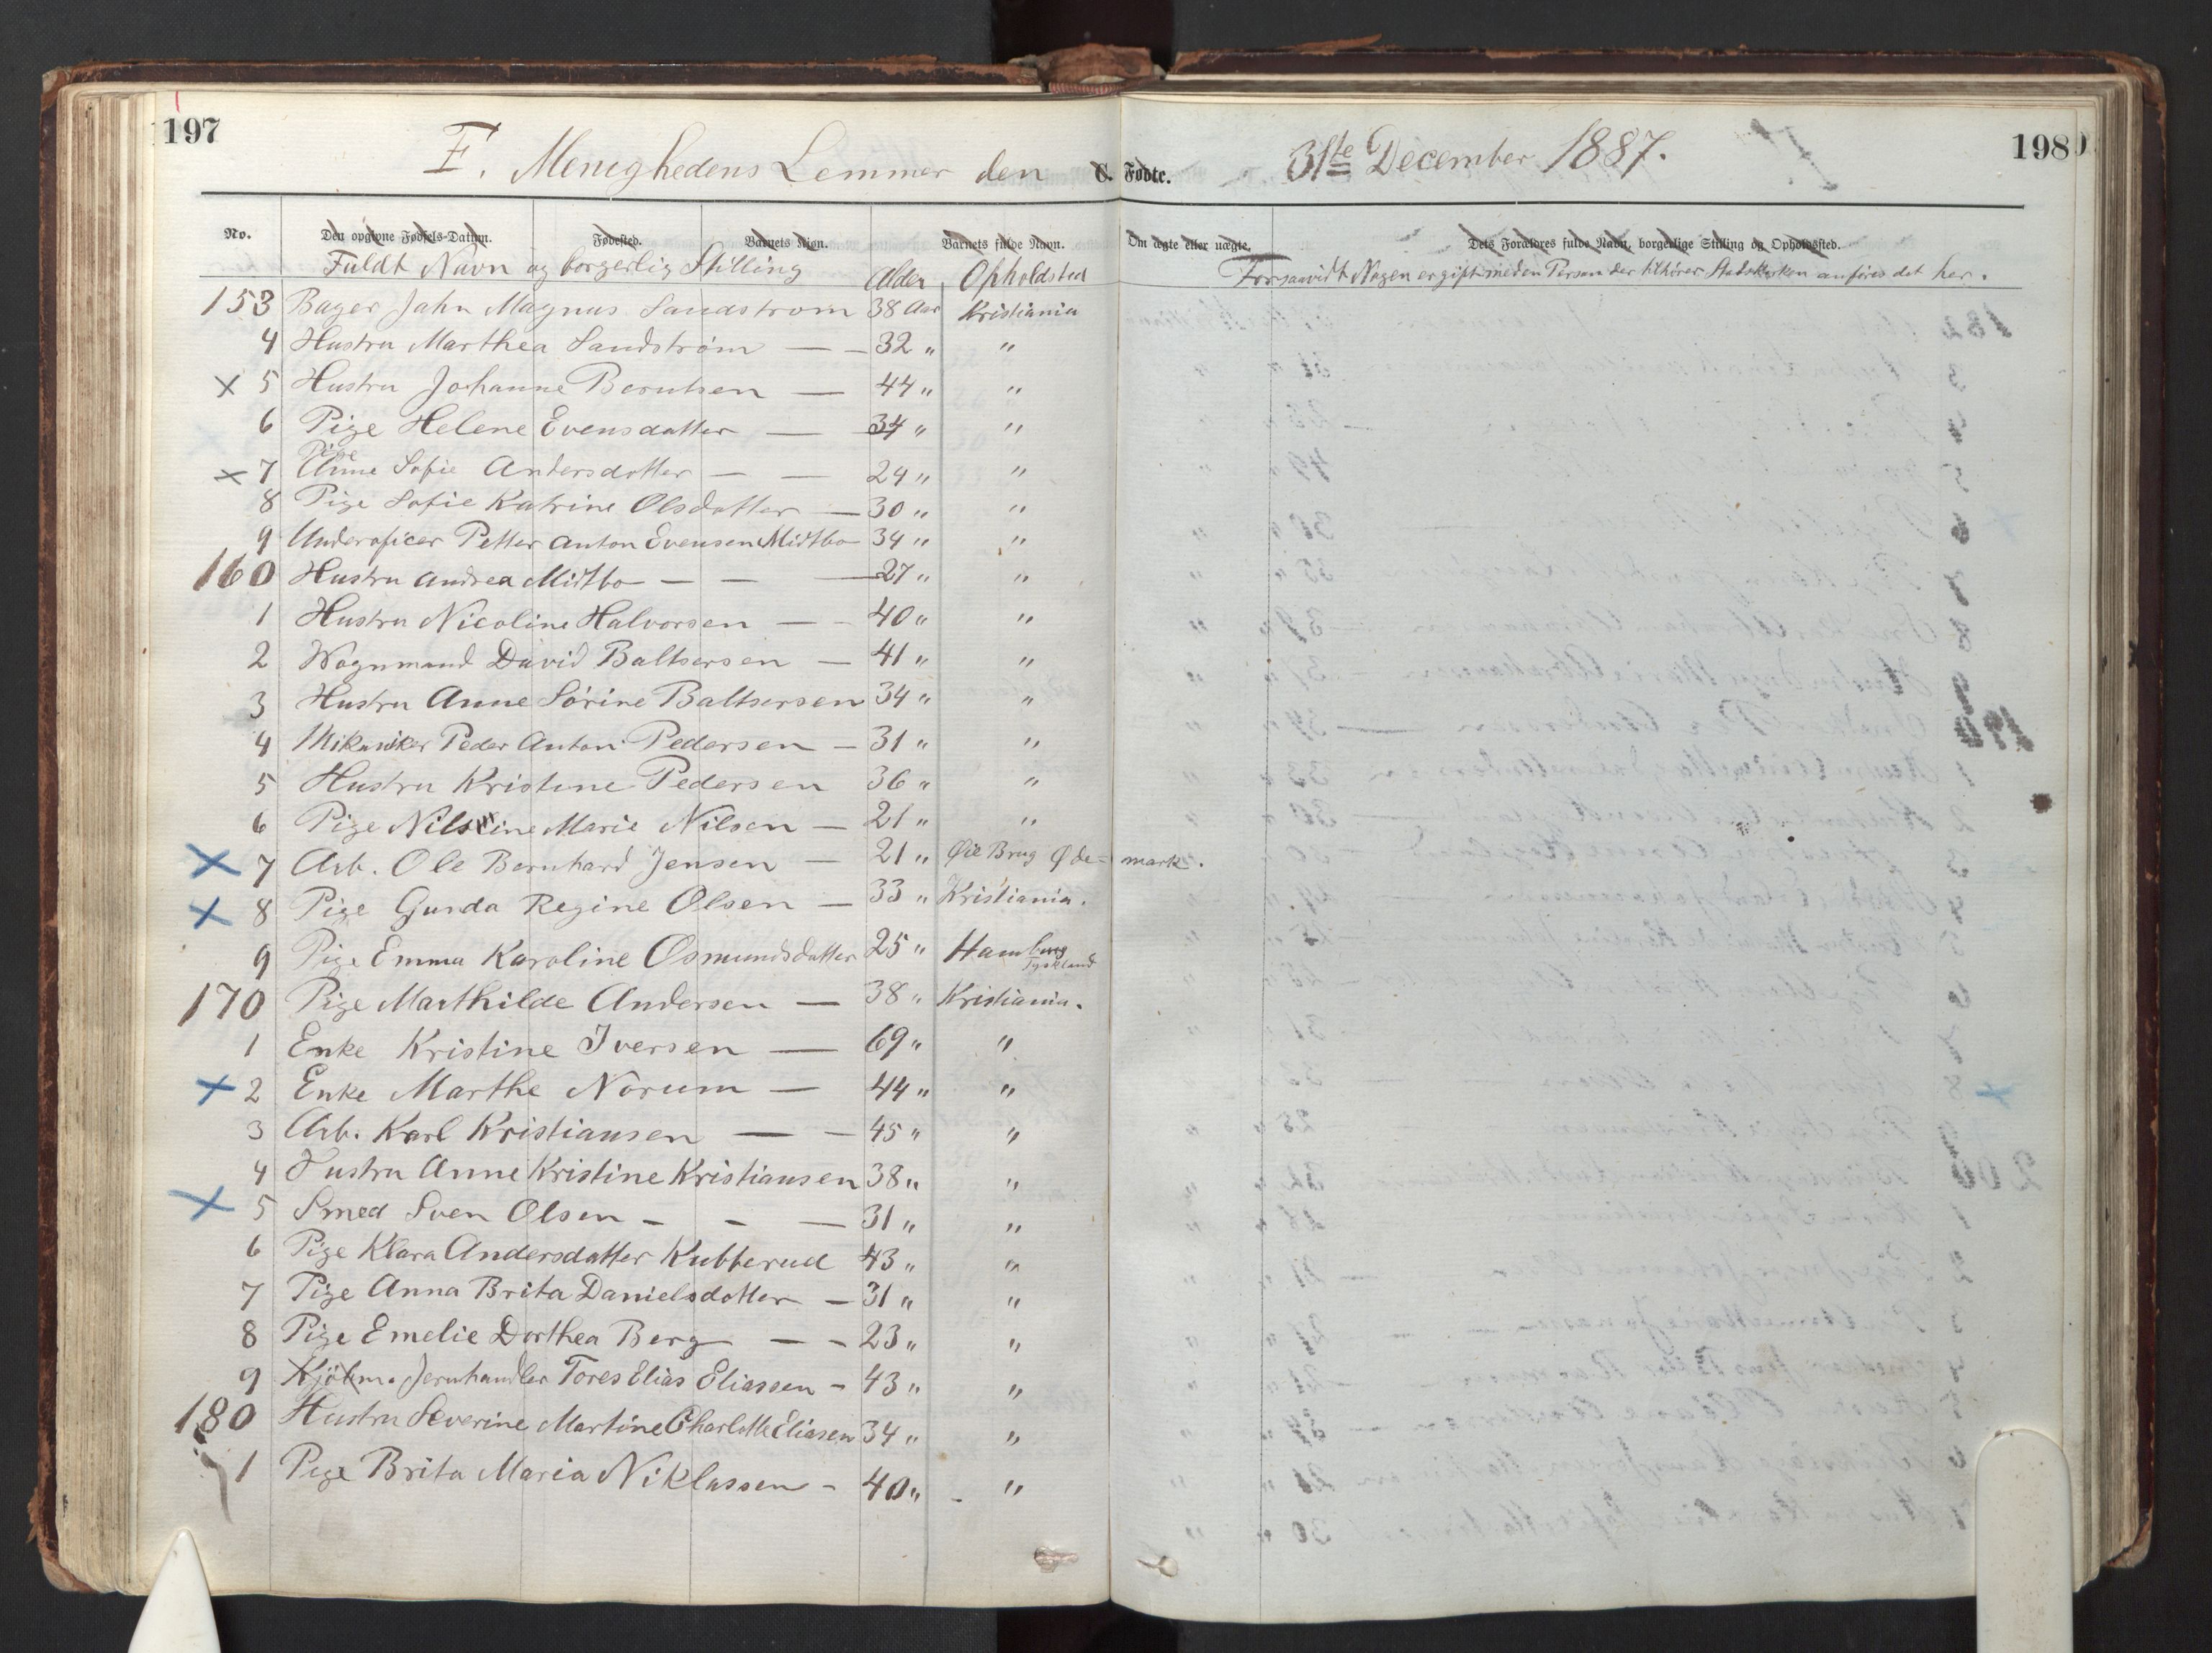 197
198
F. Menighedens Lemmer den C. Fødte. 31te December 1887.
No. Den opgivne Fødsels-Datum. Fødested. Barnets Kjøn. Barnets fulde Navn. Om ægte eller uægte. Dets Forældres fulde Navn, borgerlige Stilling og Opholdssted.
Fuldt Navn og borgerlig Stilling Alder Opholdsted Forsaavidt Nogen er gift med en Person der tilhører Statskirken anføres det her.
153 Bager Jahn Magnus Sandstrom 38 Aar Kristiania
4 Hustru Marthea Sandstrøm — — 32 " "
x 5 Hustru Johanne Berntsen — 44 " "
6 Pige Helene Evensdatter — 34 " "
Pige
x 7 Anne Sofie Andersdatter — — 24 " "
8 Pige Sofie Katrine Olsdatter — 30 " "
9 Underoficer Petter Anton Evensen Midtbo 34 " "
160 Hustru Andrea Midtbo — — — 27 " "
1 Hustru Nicoline Halvorsen — - 40 " "
2 Wognmand David Baltsersen — 41 " "
3 Hustru Anne Sørine Baltsersen 34 " "
4 Mikaniker Peder Anton Pedersen — 31 " "
5 Hustru Kristine Pedersen 36 " "
6 Pige Nilsine Marie Nilsen — 21 " "
x 7 Arb. Ole Bernhard Jensen — 21 " Øie Brug Øde- mark.
x 8 Pige Gunda Regine Olsen — 33 " Kristiania.
9 Pige Emma Karoline Osmundsdatter 25 " Hamburg
Tyskland
170 Pige Marthilde Andersen — 38 " Kristiania.
1 Enke Kristine Iversen — 69 " "
x 2 Enke Marthe Norum — 44 " "
3 Arb. Karl Kristiansen — — 45 " "
4 Hustru Anne Kristine Kristiansen 38 " "
x 5 Smed Sven Olsen - - — 31 " "
6 Pige Klara Andersdatter Kubberud 43 " "
7 Pige Anna Brita Danielsdotter — 31 " "
8 Pige Emelie Dorthea Berg — - 23 " "
9 Kjøbm. Jernhandler Tores Elias Eliassen - 43 " "
180 Hustru Severine Martine Charlotte Eliasen 34 " "
1 Pige Brita Maria Niklassen - 40 " - "